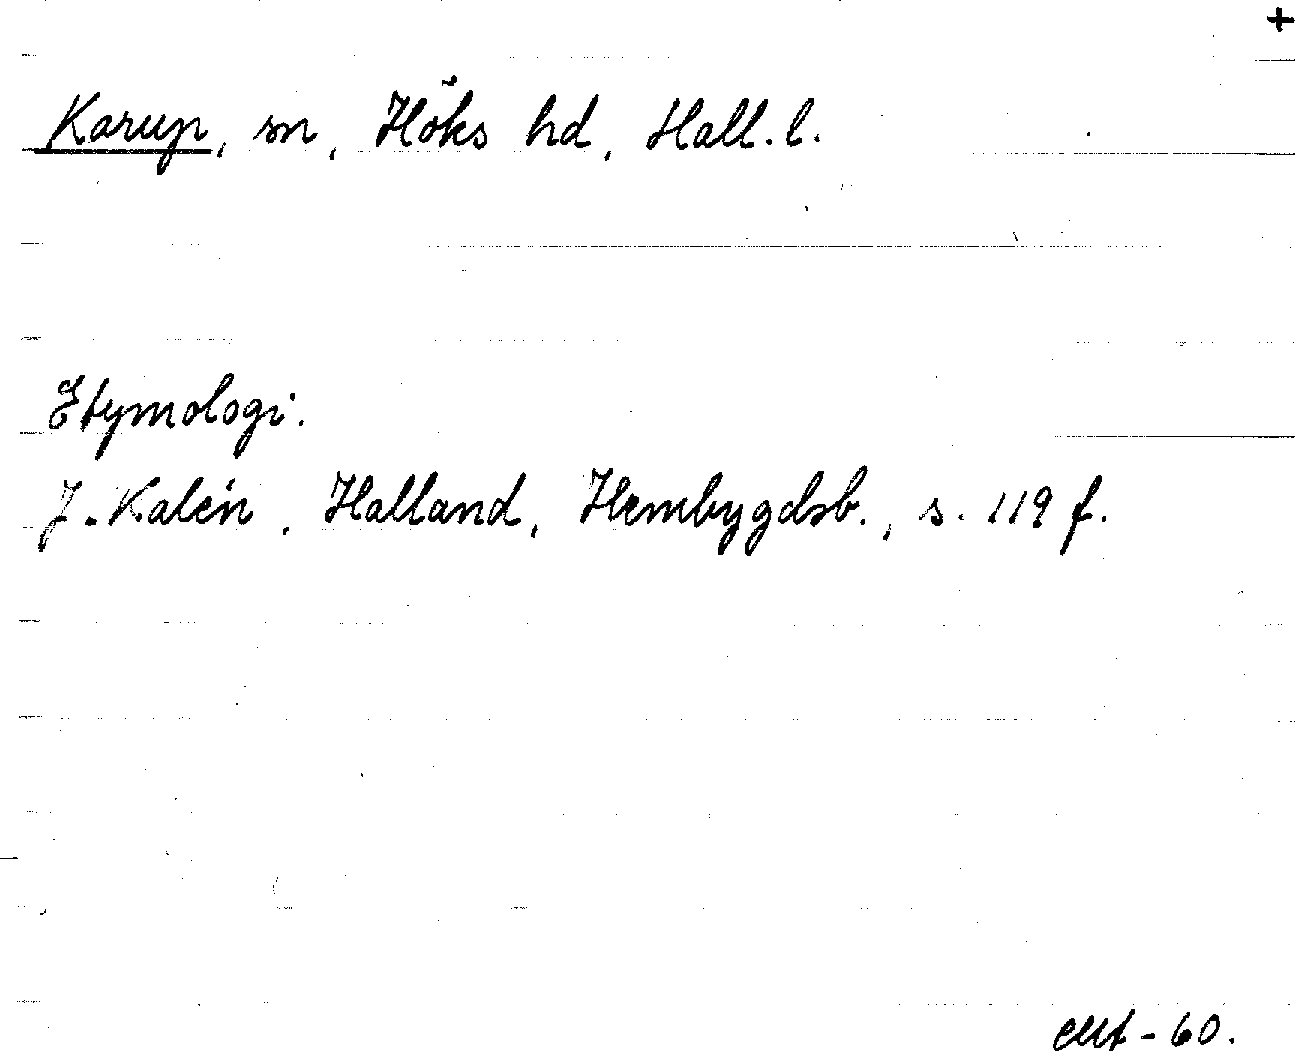 +
Karup, sn, Höks hd, Hall. l.
Etymologi.
J. Kalén, Halland, Hembygdsb., s. 119 f.
-60.